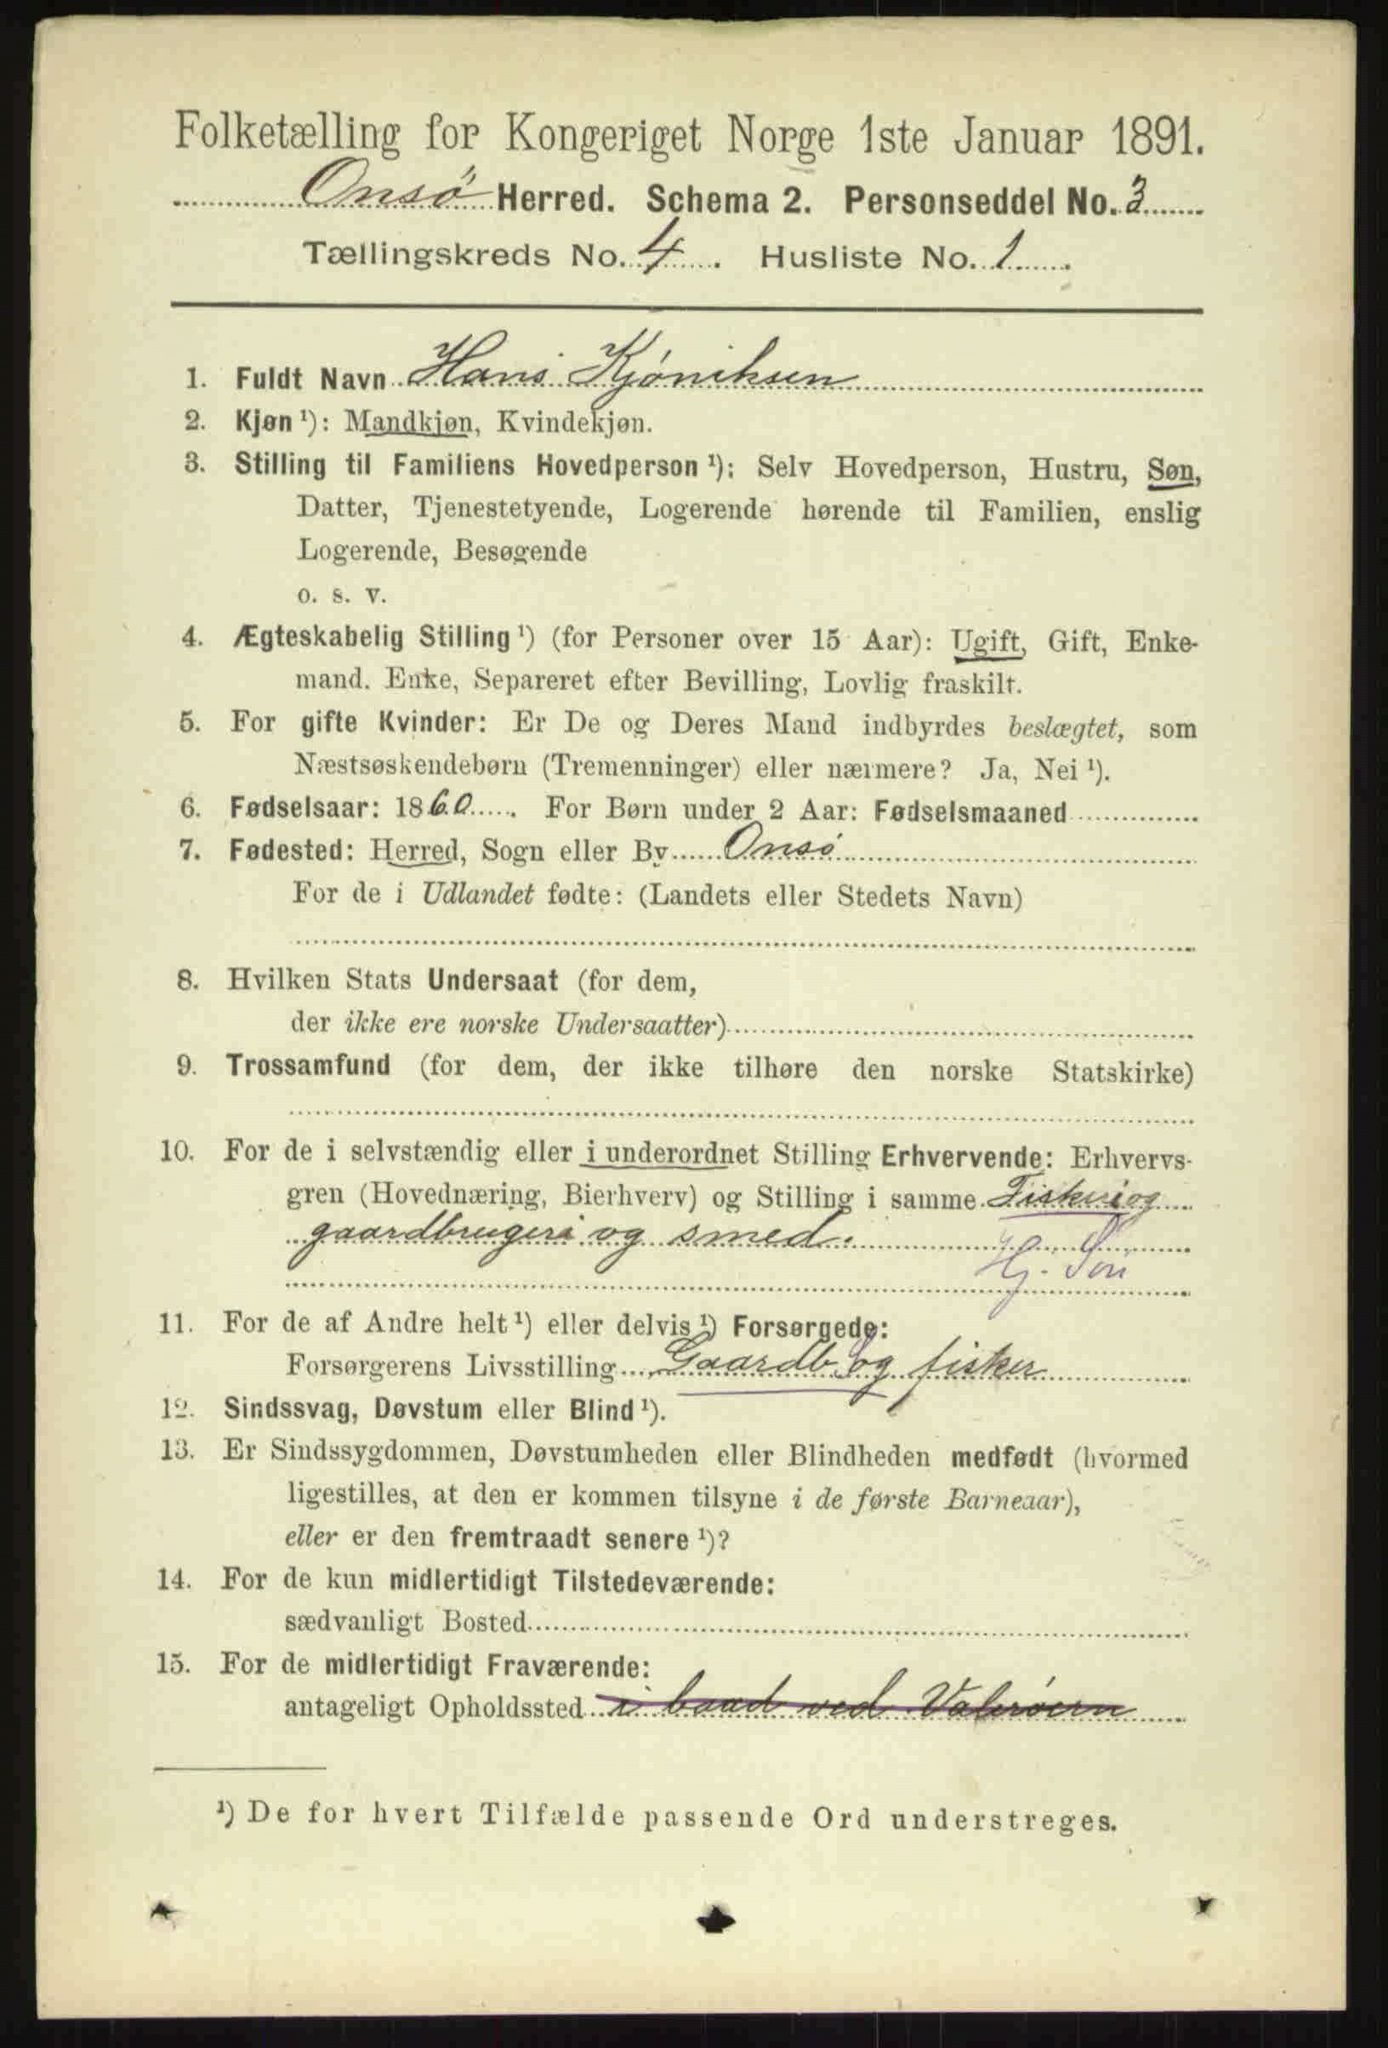 Folketælling for Kongeriget Norge 1ste Januar 1891.
Onsö Herred. Schema 2. Personseddel No. 3
Tællingskreds No. 4. Husliste No. 1.
1. Fuldt Navn Hans Kjøniksen
2. Kjøn ¹): Mandkjøn, Kvindekjøn.
3. Stilling til Familiens Hovedperson ¹): Selv Hovedperson, Hustru, Søn,
Datter, Tjenestetyende, Logerende hørende til Familien, enslig
Logerende, Besøgende
o. s. v.
4. Ægteskabelig Stilling ¹) (for Personer over 15 Aar): Ugift, Gift, Enke-
mand. Enke, Separeret efter Bevilling, Lovlig fraskilt.
5. For gifte Kvinder: Er De og Deres Mand indbyrdes beslægtet, som
Næstsøskendebørn (Tremenninger) eller nærmere? Ja, Nei ¹).
6. Fødselsaar: 1860. For Børn under 2 Aar: Fødselsmaaned
7. Fødested: Herred, Sogn eller By Onsö
For de i Udlandet fødte: (Landets eller Stedets Navn)
8. Hvilken Stats Undersaat (for dem,
der ikke ere norske Undersaatter)
9. Trossamfund (for dem, der ikke tilhøre den norske Statskirke)
10. For de i selvstændig eller i underordnet Stilling Erhvervende: Erhvervs-
gren (Hovednæring, Bierhverv) og Stilling i samme Fiskeri og
gaardbrugeri og smed.
Hj. Søn
11. For de af Andre helt ¹) eller delvis ¹) Forsørgede:
Forsørgerens Livsstilling Gaardb og fisker
12. Sindssvag, Døvstum eller Blind ¹).
13. Er Sindssygdommen, Døvstumheden eller Blindheden medfødt (hvormed
ligestilles, at den er kommen tilsyne i de første Barneaar),
eller er den fremtraadt senere ¹)?
14. For de kun midlertidigt Tilstedeværende:
sædvanligt Bosted
15. For de midlertidigt Fraværende:
antageligt Opholdssted i baad ved
¹) De for hvert Tilfælde passende Ord understreges.